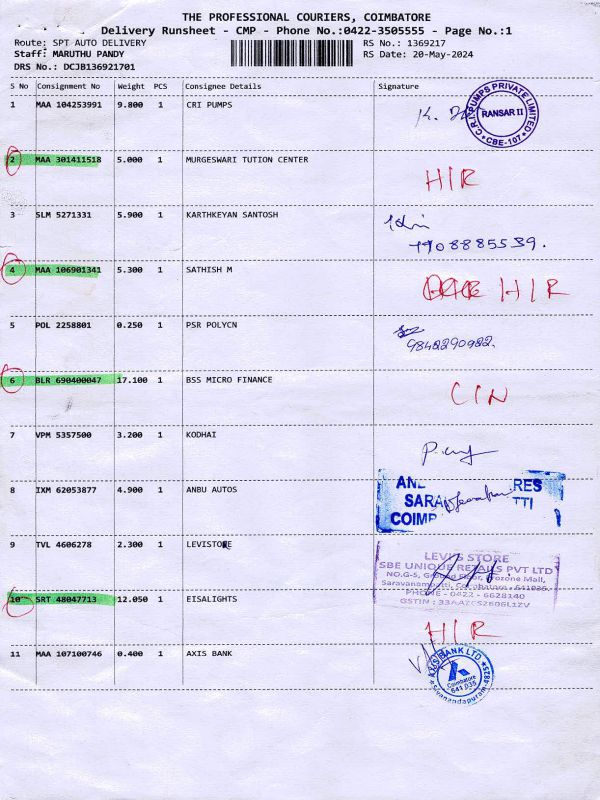 THE PROFESSIONAL COURIERS, COIMBATORE
Delivery Runsheet - CMP - Phone No.:0422-3505555 - Page No.:1
Route: SPT AUTO DELIVERY RS No.: 1369217
Staff: MARUTHU PANDY RS Date: 20-May-2024
DRS No.: DCJB136921701
S No Consignment No Weight PCS Consignee Details Signature
1 MAA 104253991 9.800 1 CRI PUMPS
C.R.I. PUMPS PRIVATE LIMITED
RANSAR II
CBE-107
2 MAA 301411518 5.000 1 MURGESWARI TUTION CENTER
H/R
3 SLM 5271331 5.900 1 KARTHKEYAN SANTOSH
4 MAA 106901341 5.300 1 SATHISH M
H/R
5 POL 2258801 0.250 1 PSR POLYCN
9842290982.
6 BLR 690400047 17.100 1 BSS MICRO FINANCE
C/N
7 VPM 5357500 3.200 1 KODHAI
8 IXM 62053877 4.900 1 ANBU AUTOS
9 TVL 4606278 2.300 1 LEVISTORE
LEVI'S STORE
SBE UNIQUE RETAILS PVT LTD
10 SRT 48047713 12.050 1 EISALIGHTS
H/R
11 MAA 107100746 0.400 1 AXIS BANK
AXIS BANK LTD
Coimbatore
641 035